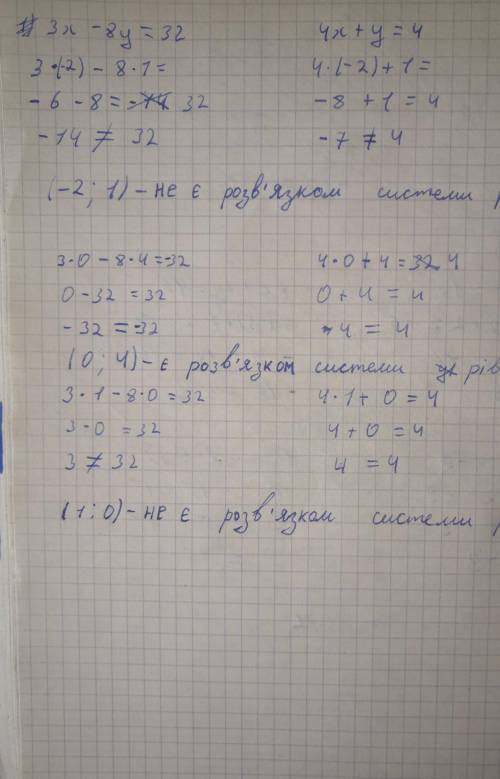 1) 3x - 8y = 32 4x + y = 4
3·(-2) - 8·1 = 4·(-2) + 1 =
- 6 - 8 = 32 - 8 + 1 = 4
- 14 ≠ 32 - 7 ≠ 4
(-2; 1) - не є розв'язком системи р
3·0 - 8·4 = -32 4·0 + 4 = 4
0 - 32 = 32 0 + 4 = 4
- 32 = -32 4 = 4
(0; 4) - є розв'язком системи рів
3·1 - 8·0 = 32 4·1 + 0 = 4
3 - 0 = 32 4 + 0 = 4
3 ≠ 32 4 = 4
(1; 0) - не є розв'язком системи р